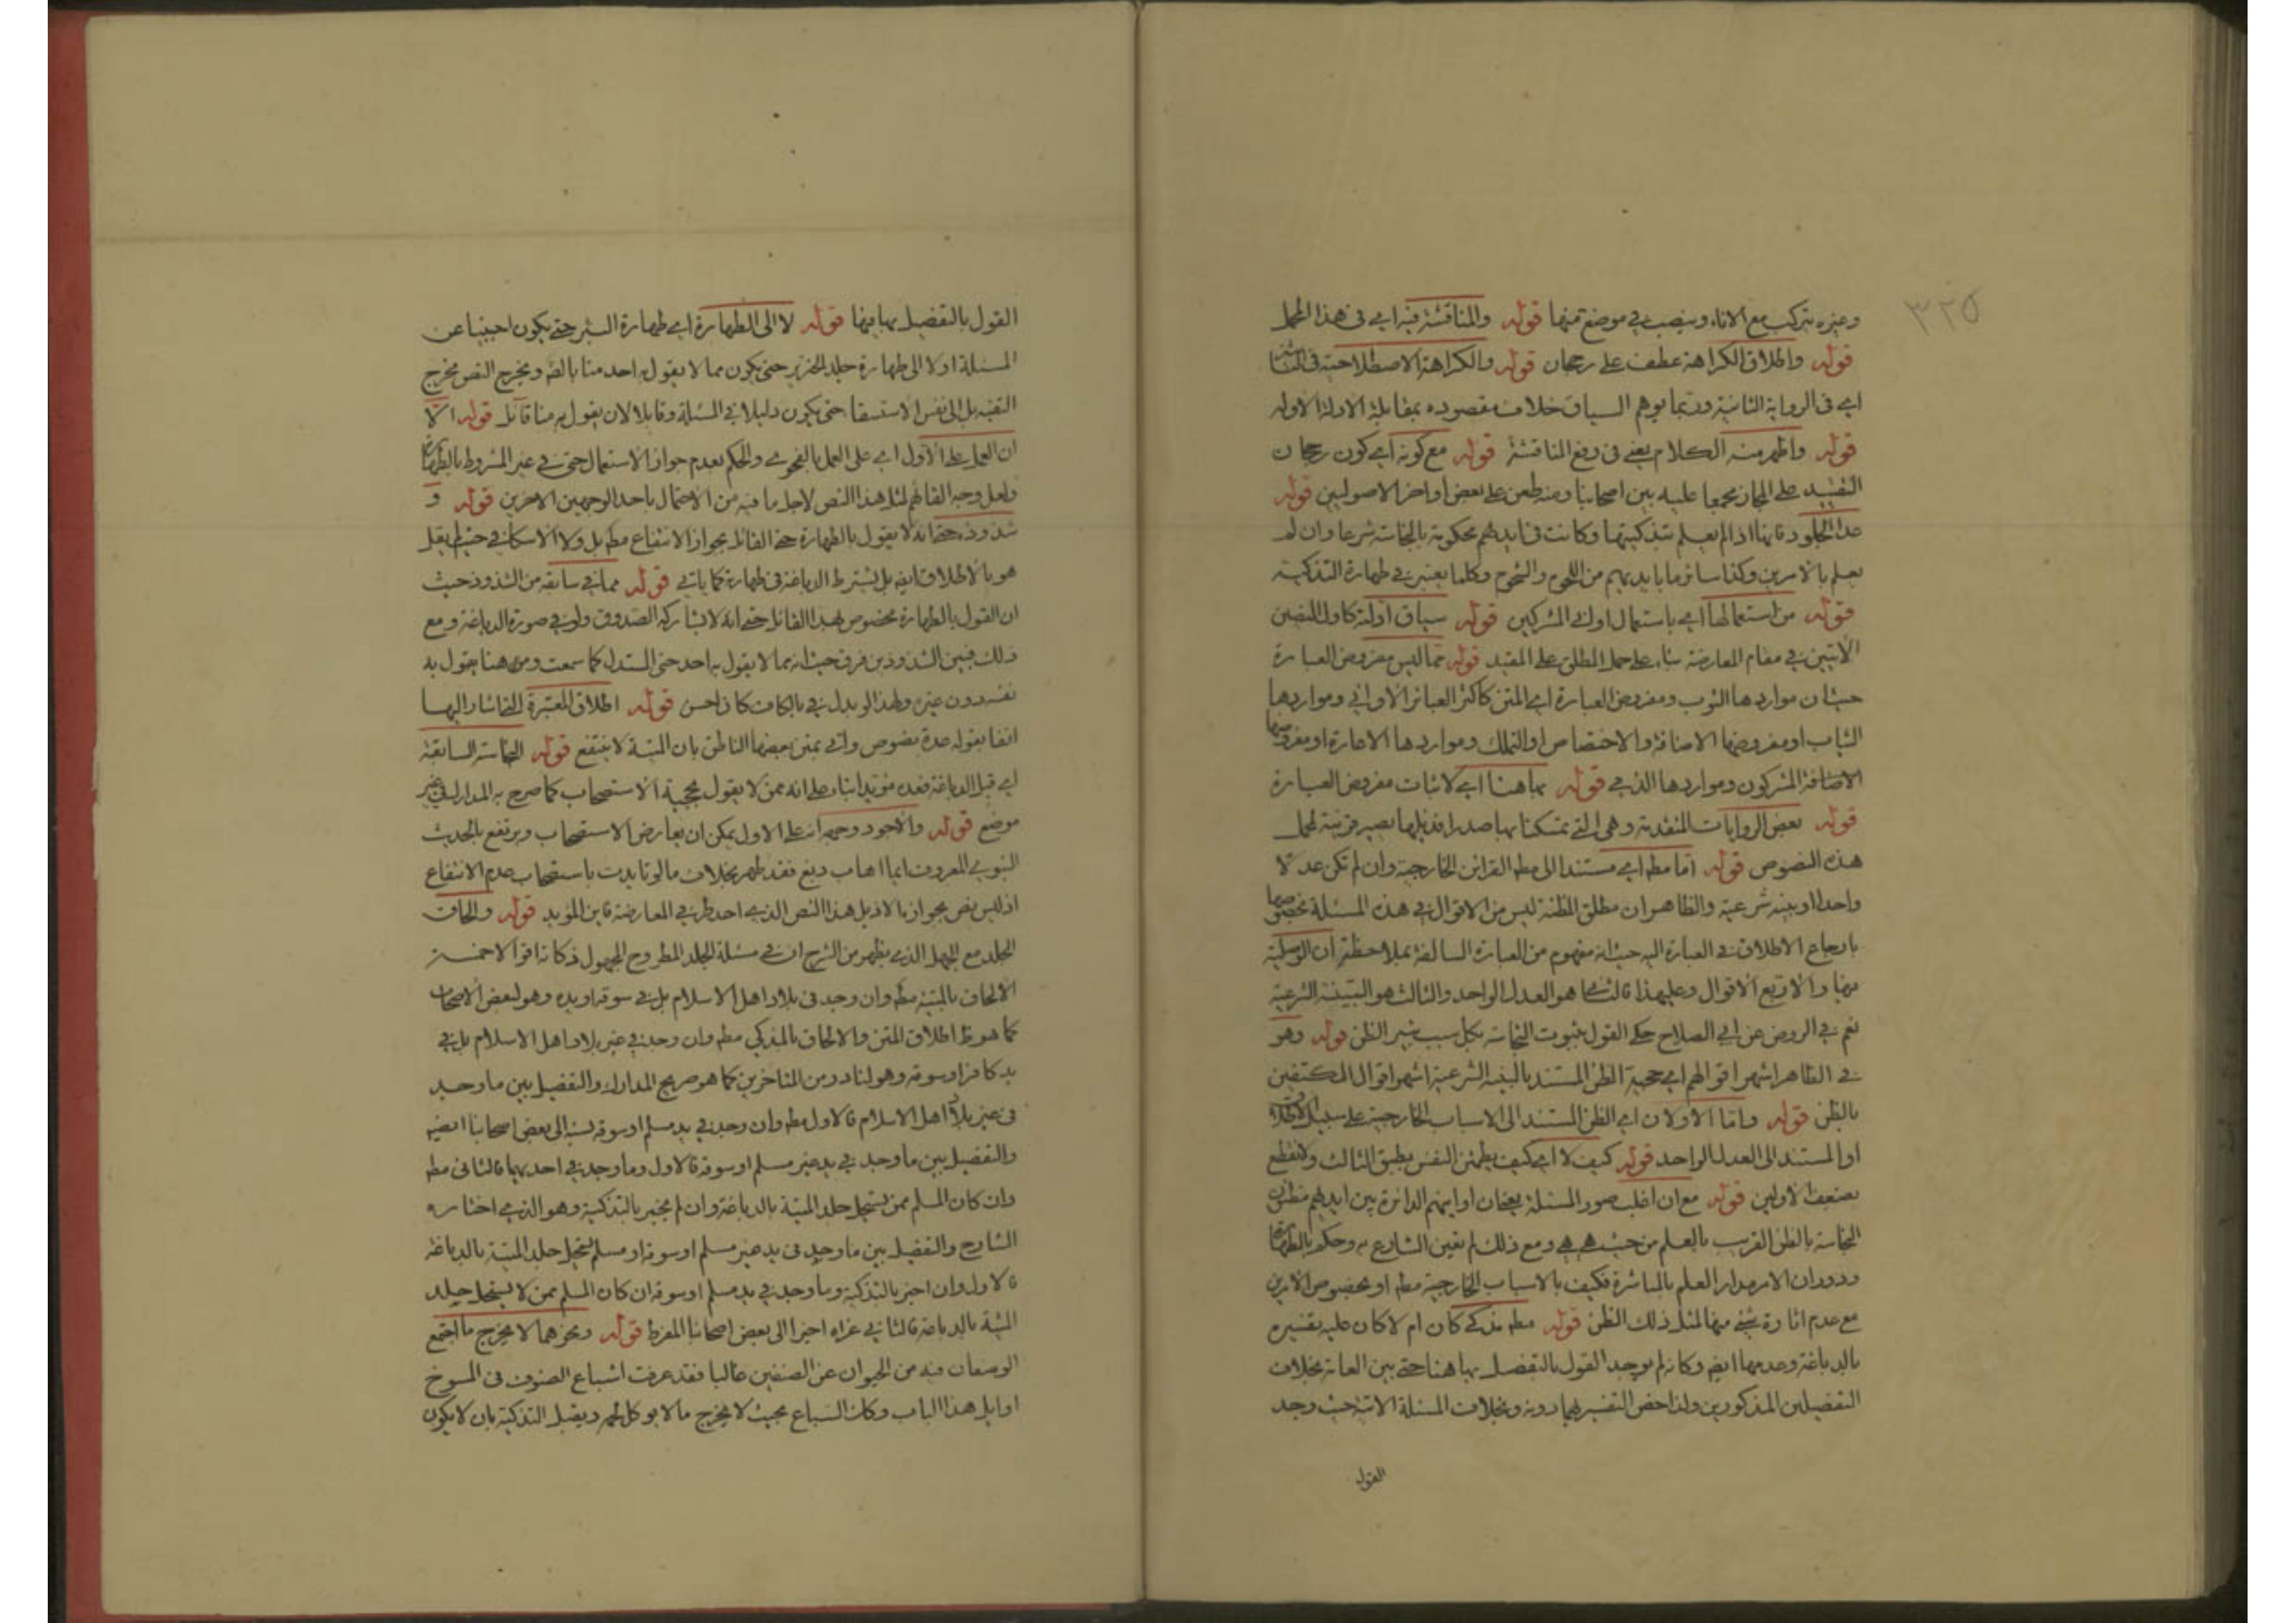 ٣٢٥
وغيره بتركب مع الاناء وينصب في موضع منها قوله والمناقشة فيه اي في هذا الحمل
قوله واطلاق الكراهة عطف على رجحان قوله والكراهة الاصطلاحية في
اي في الرواية الثانية وربما يوهم السياق خلاف مقصوده بمقابلة الادلة الاوله
قوله واظهر منه الكلام يعني في دفع المناقشة قوله مع كونه اي كون رجحان
التقييد على المجاز مجمعا عليه بين اصحابنا ومنه طعن على بعض اواخر الاصوليين قوله
عدا الجلود فانها اذا لم يعلم بتذكيتها وكانت في ايديهم محكومة بالنجاسة شرعا وان لم
يعلم بالامرين وكذا سائر ما بايديهم من اللحوم والشحوم وكلما يعتبر في طهارة التذكية
قوله من استعمالها اي باستعمال اواني المشركين قوله سياق ادلة كاول النصين
الاتيين في مقام المعارضة بناء على حمل المطلق على المقيد قوله مما ليس مفروض العبارة
حيث ان مواردها الثوب ومفروض العبارة اي المتن كاكثر العبائر الاواني ومواردها
الثياب او مفروضها الاضافة والاختصاص او التملك ومواردها الاعارة او مفروضها
الاضافة المشركون ومواردها الذمي قوله بما هنا اي لاثبات مفروض العبارة
قوله بعض الروايات المتقدمة وهي التي تمسكنا بها صدرا فذيلها يصير قرينة لحمل
هذه النصوص قوله اما مطم اي مستندا الى مطم القرائن الخارجية وان لم تكن عدلا
واحدا او بينه شرعية والظاهر ان مطلق المظنة ليس من الاقوال في هذه المسئلة بخصوصها
بارجاع الاطلاق في العبارة اليه حيث انه مفهوم من العبارة السالفة بملاحظة ان الوصلية
منها والاربع الاقوال وعليهذا فالثانى هو العدل الواحد والثالث هو البينة الشرعية
نعم في الروض عن ابي الصلاح حكى القول بثبوت النجاسة بكل سبب يثير الظن قوله وهو
في الظاهر اشهر اقوالهم اي حجية الظن المستند بالبينه الشرعية اشهر اقوال المكتفين
بالظن قوله واما الاولان اي الظن المستند الى الاسباب الخارجية على سبيل الاطلاق
او المستند الى العدل الواحد قوله كيف لا اي كيف يطمئن النفس بطبق الثالث ولا تقطع
بضعف الاولين قوله مع ان اغلب صور المسئلة او اينهم الدائرة بين ايديهم مظنون
النجاسة بالظن القريب بالعلم من حيث هي هي ومع ذلك لم يقين الشارع به وحكم بالطهارة
ودوران الامر مدار العلم بالمباشرة فكيف بالاسباب الخارجية مطم او بخصوص الامرين
مع عدم اثارة شيء منها لمثل ذلك الظن قوله مطم مذكى كان ام لا كان عليه تفسيره
بالدباغة وعدمها ايضم وكانه لم يوجد القول بالتفصيل بها هنا حتى بين العامة بخلاف
التفصيلين المذكورين ولذا خص التفسير بهما دونه وبخلاف المسئلة الاتية حيث وجد
القول
القول بالتفصيل بها فيها قوله لا الى الطهارة اي طهارة البئر حتى يكون اجنبيا عن
المسئلة اولا الى طهارة جلد الخنزير حتى يكون مما لا يقول به احد منا بالضم ويخرج النص مخرج
التقيه بل الى نفس الاستسقا حتى يكون دليلا في المسئلة وقابلا لان يقول به منا قائل قوله الا
ان العمل على الاول اي على العمل بالفحوى والحكم بعدم جواز الاستعمال حتى في غير المشروط بالطهارة
ولعل وجه القائهم لمثل هذا النص لاجل ما فيه من الاحتمال باحد الوجهين الاخرين قوله و
شذوذه حتى انه لا يقول بالطهارة حتى القائل بجواز الانتفاع مطم بل ولا الاسكافي حيث لم يقل
هو بالاطلاق ايضم بل يشترط الدباغة في طهارة كما ياتي قوله مما في سابقه من الشذوذ حيث
ان القول بالطهارة مخصوص بهذا القائل حتى انه لا يشاركه الصدوق ولو في صورة الدباغة ومع
ذلك فبين الشذوذين فرق حيث انه مما لا يقول به احد حتى المستدل كما سمعت ومن هنا يقول به
نفسه دون غيره ولهذا لو بدل في بالكاف كان احسن قوله اطلاق المعتبرة التي اشار اليها
انفا بقوله عدة نصوص واتى بمتن بعضها الناطق بان الميتة لا ينتفع قوله النجاسة السابقة
اي قبل الدباغة فعده مؤيدا بناء على انه ممن لا يقول بحجية الاستصحاب كما صرح به المدارك في غير
موضع قوله والاجود وجهه انه على الاول يمكن ان يعارض الاستصحاب ويرتفع بالحديث
النبوي المعروف ايما اهاب دبغ فقد طهر بخلاف ما لو تايدت باستصحاب عدم الانتفاع
اذ ليس نص بجوازه الا ذيل هذا النص الذي احد طرفي المعارضة فاين المؤيد قوله والحاق
الجلد مع الجهل الذي يظهر من الشرح ان في مسئلة الجلد المطروح المجهول ذكاته اقوالا خمسة
الالحاق بالميتة مطم وان وجد في بلاد اهل الاسلام بل في سوقه او يده وهو لبعض الاصحاب
كما هو ظ اطلاق المتن والالحاق بالمذكى مطم وان وجد في غير بلاد اهل الاسلام بل في
يد كافر او سوقه وهو لنادر من المتاخرين كما هو صريح المدارك والتفصيل بين ما وجد
في غير بلاد اهل الاسلام فالاول مطم وان وجد في يد مسلم او سوقه نسبه الى بعض اصحابنا ايضم
والتفصيل بين ما وجد في يد غير مسلم او سوقه فالاول وما وجد في احد يهما فالثاني مطم
وان كان المسلم ممن يستحل جلد الميتة بالدباغة وان لم يخبر بالتذكية وهو الذي اختاره
الشارح والتفصيل بين ما وجد في يد غير مسلم او سوقه او مسلم يستحل جلد الميتة بالدباغة
فالاول وان اخبر بالتذكية وما وجد في يد مسلم او سوقه ان كان المسلم ممن لا يستحل جلد
الميتة بالدباغة فالثاني عزاه اخيرا الى بعض اصحابنا المفرط قوله ونحوهما لا يخرج ما اجتمع
الوصفان فيه من الحيوان عن الصنفين غالبا فقد عرفت اشباع الصنوف في المسوخ
اوايل هذا الباب وكان السباع بحيث لا يخرج ما لا يوكل لحمه ويقبل التذكية بان لا يكون